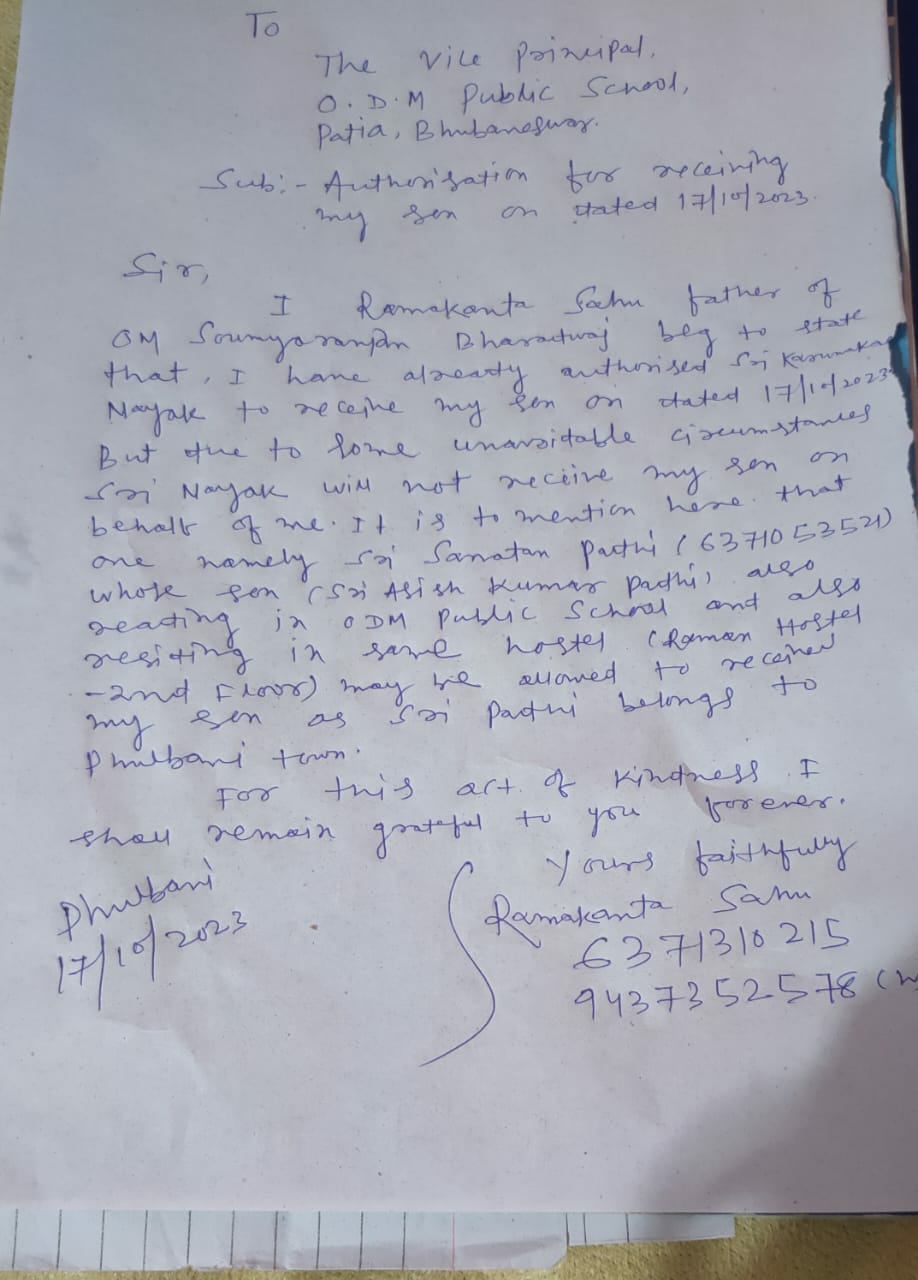 To
The Vice Principal,
O.D.M Public School,
Patia, Bhubaneswar.
Sub:- Authorisation for receiving
my son on dated 17/10/2023.
Sir,
I Ramakanta Sahu father of
OM Soumyaranjan Bharadwaj beg to state
that, I have already authorised Sri Karunakar
Nayak to receive my son on dated 17/10/2023
But due to some unavoidable circumstances
Sri Nayak will not receive my son on
behalf of me. It is to mention here that
one namely Sri Sanatan Padhi (6371053521)
whose son (Sri Asish Kumar Padhi) also
reading in ODM Public School and also
residing in same hostel (Raman Hostel
-2nd Floor) may be allowed to received
my son as Sri Padhi belongs to
Phulbani town.
For this act of kindness I
shall remain grateful to you forever.
Yours faithfully
Ramakanta Sahu
6371310215
9437352578
Phulbani
17/10/2023